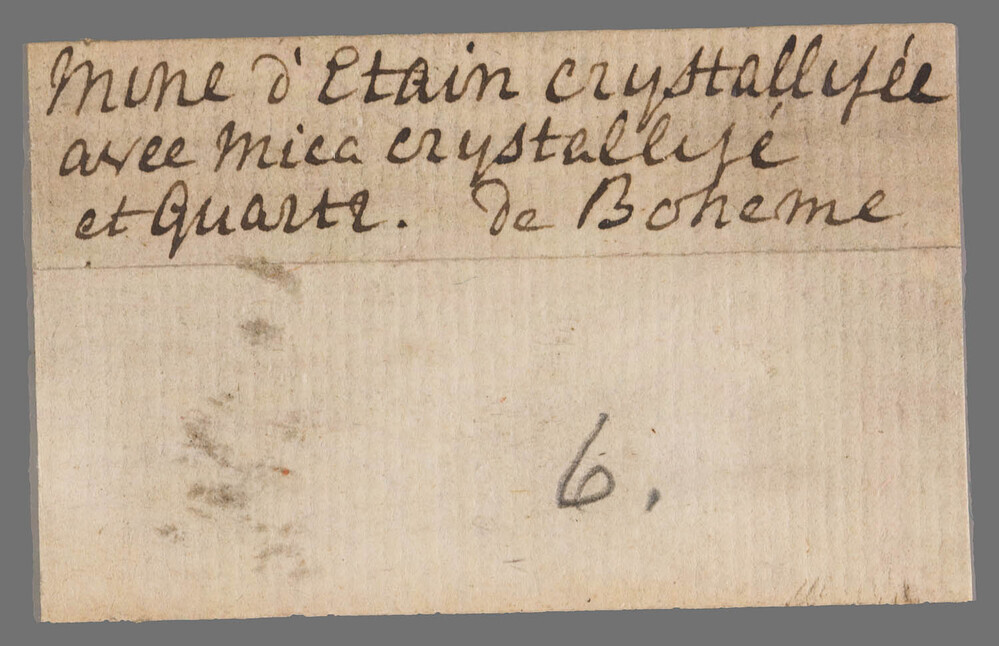 Mine d'Etain crystallisée
avec Mica crystallisé
et Quartz. de Boheme
6.